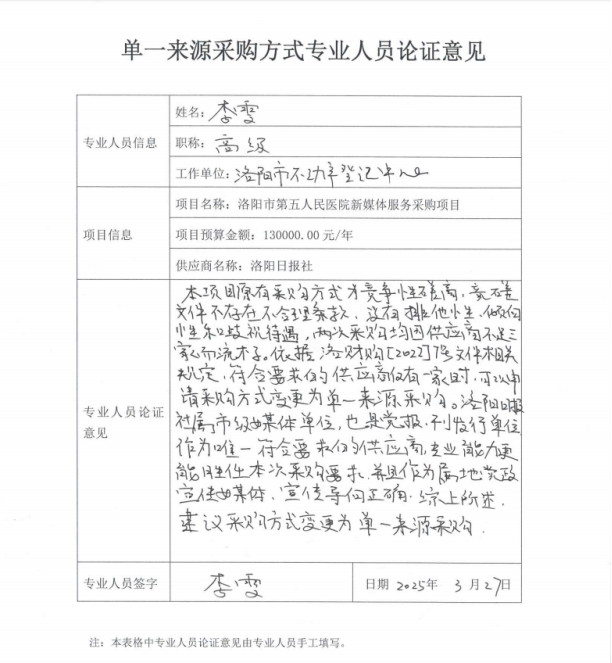 单一来源采购方式专业人员论证意见
专业人员信息
姓名：李雯
职称：高级
工作单位：洛阳市不动产登记中心
项目信息
项目名称：洛阳市第五人民医院新媒体服务采购项目
项目预算金额：130000.00 元/年
供应商名称：洛阳日报社
专业人员论证
意见
本项目原有采购方式为竞争性磋商，竞磋
文件不存在不合理条款，没有排他性、倾向
性和歧视待遇，两次采购均因供应商不足三
家而流标。依据洛财购[2022]7号文件相关
规定，符合要求的供应商仅有一家时，可以申
请采购方式变更为单一来源采购。洛阳日报
社属于市级媒体单位，也是党报、刊发行单位
作为唯一符合要求的供应商，专业能力更
能胜任本次采购要求，并且作为属地党政
宣传媒体，宣传导向正确。综上所述，
建议采购方式变更为单一来源采购.
专业人员签字
李雯
日期 2025年 3 月 27日
注：本表格中专业人员论证意见由专业人员手工填写。